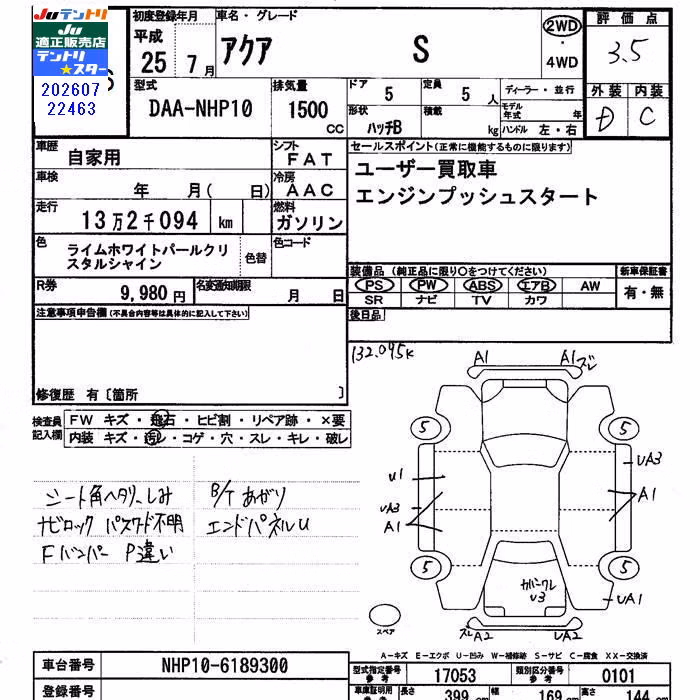 Juテントリ
Ju
適正販売店
テントリ
★スター
202607
22463
S
初度登録年月
平成
25 7月
車名・グレード
アクア S
2WD
・
4WD
評価点
3.5
外装 内装
D C
型式
DAA-NHP10
排気量
1500
CC
ドア
5
定員
5人
形状
ハッチB
積載
kg
ディーラー・並行
モデル年式 年
ハンドル 左・右
車歴 自家用
シフト
FAT
車検 年 月( 日)
冷房
AAC
走行 13万2千094 km
燃料
ガソリン
色 ライムホワイトパールクリ
スタルシャイン
色替
色コード
R券 9,980円
名変通知期限
月 日
セールスポイント(正常に機能するものに限ります)
ユーザー買取車
エンジンプッシュスタート
装備品 (純正品に限り○をつけてください)
PS PW ABS エアB AW
SR ナビ TV カワ
新車保証書
有・無
後日品
注意事項申告欄(不具合内容等は具体的に記入して下さい)
修復歴 有〔箇所 〕
検査員
記入欄
FW キズ・飛石・ヒビ割・リペア跡・×要
内装 キズ・汚レ・コゲ・穴・スレ・キレ・破レ
シート角ヘタリ、しみ
ナビロック パスワード不明
Fバンパー P違い
B/T あがり
エンドパネルU
132.095K
A1 A1 ズレ
5 5
U1 UA3
UA3
A1 A1
5 5
カバーワレ
U3
UA1
スペア
ズレA2 UA2
A-キズ E-エクボ U-凹み W-補修跡 S-サビ C-腐食 XX-交換済
車台番号 NHP10-6189300
登録番号
型式指定番号 17053
類別区分番号 0101
車庫証明用
長さ 399 cm 幅 169 cm 高さ 144 cm